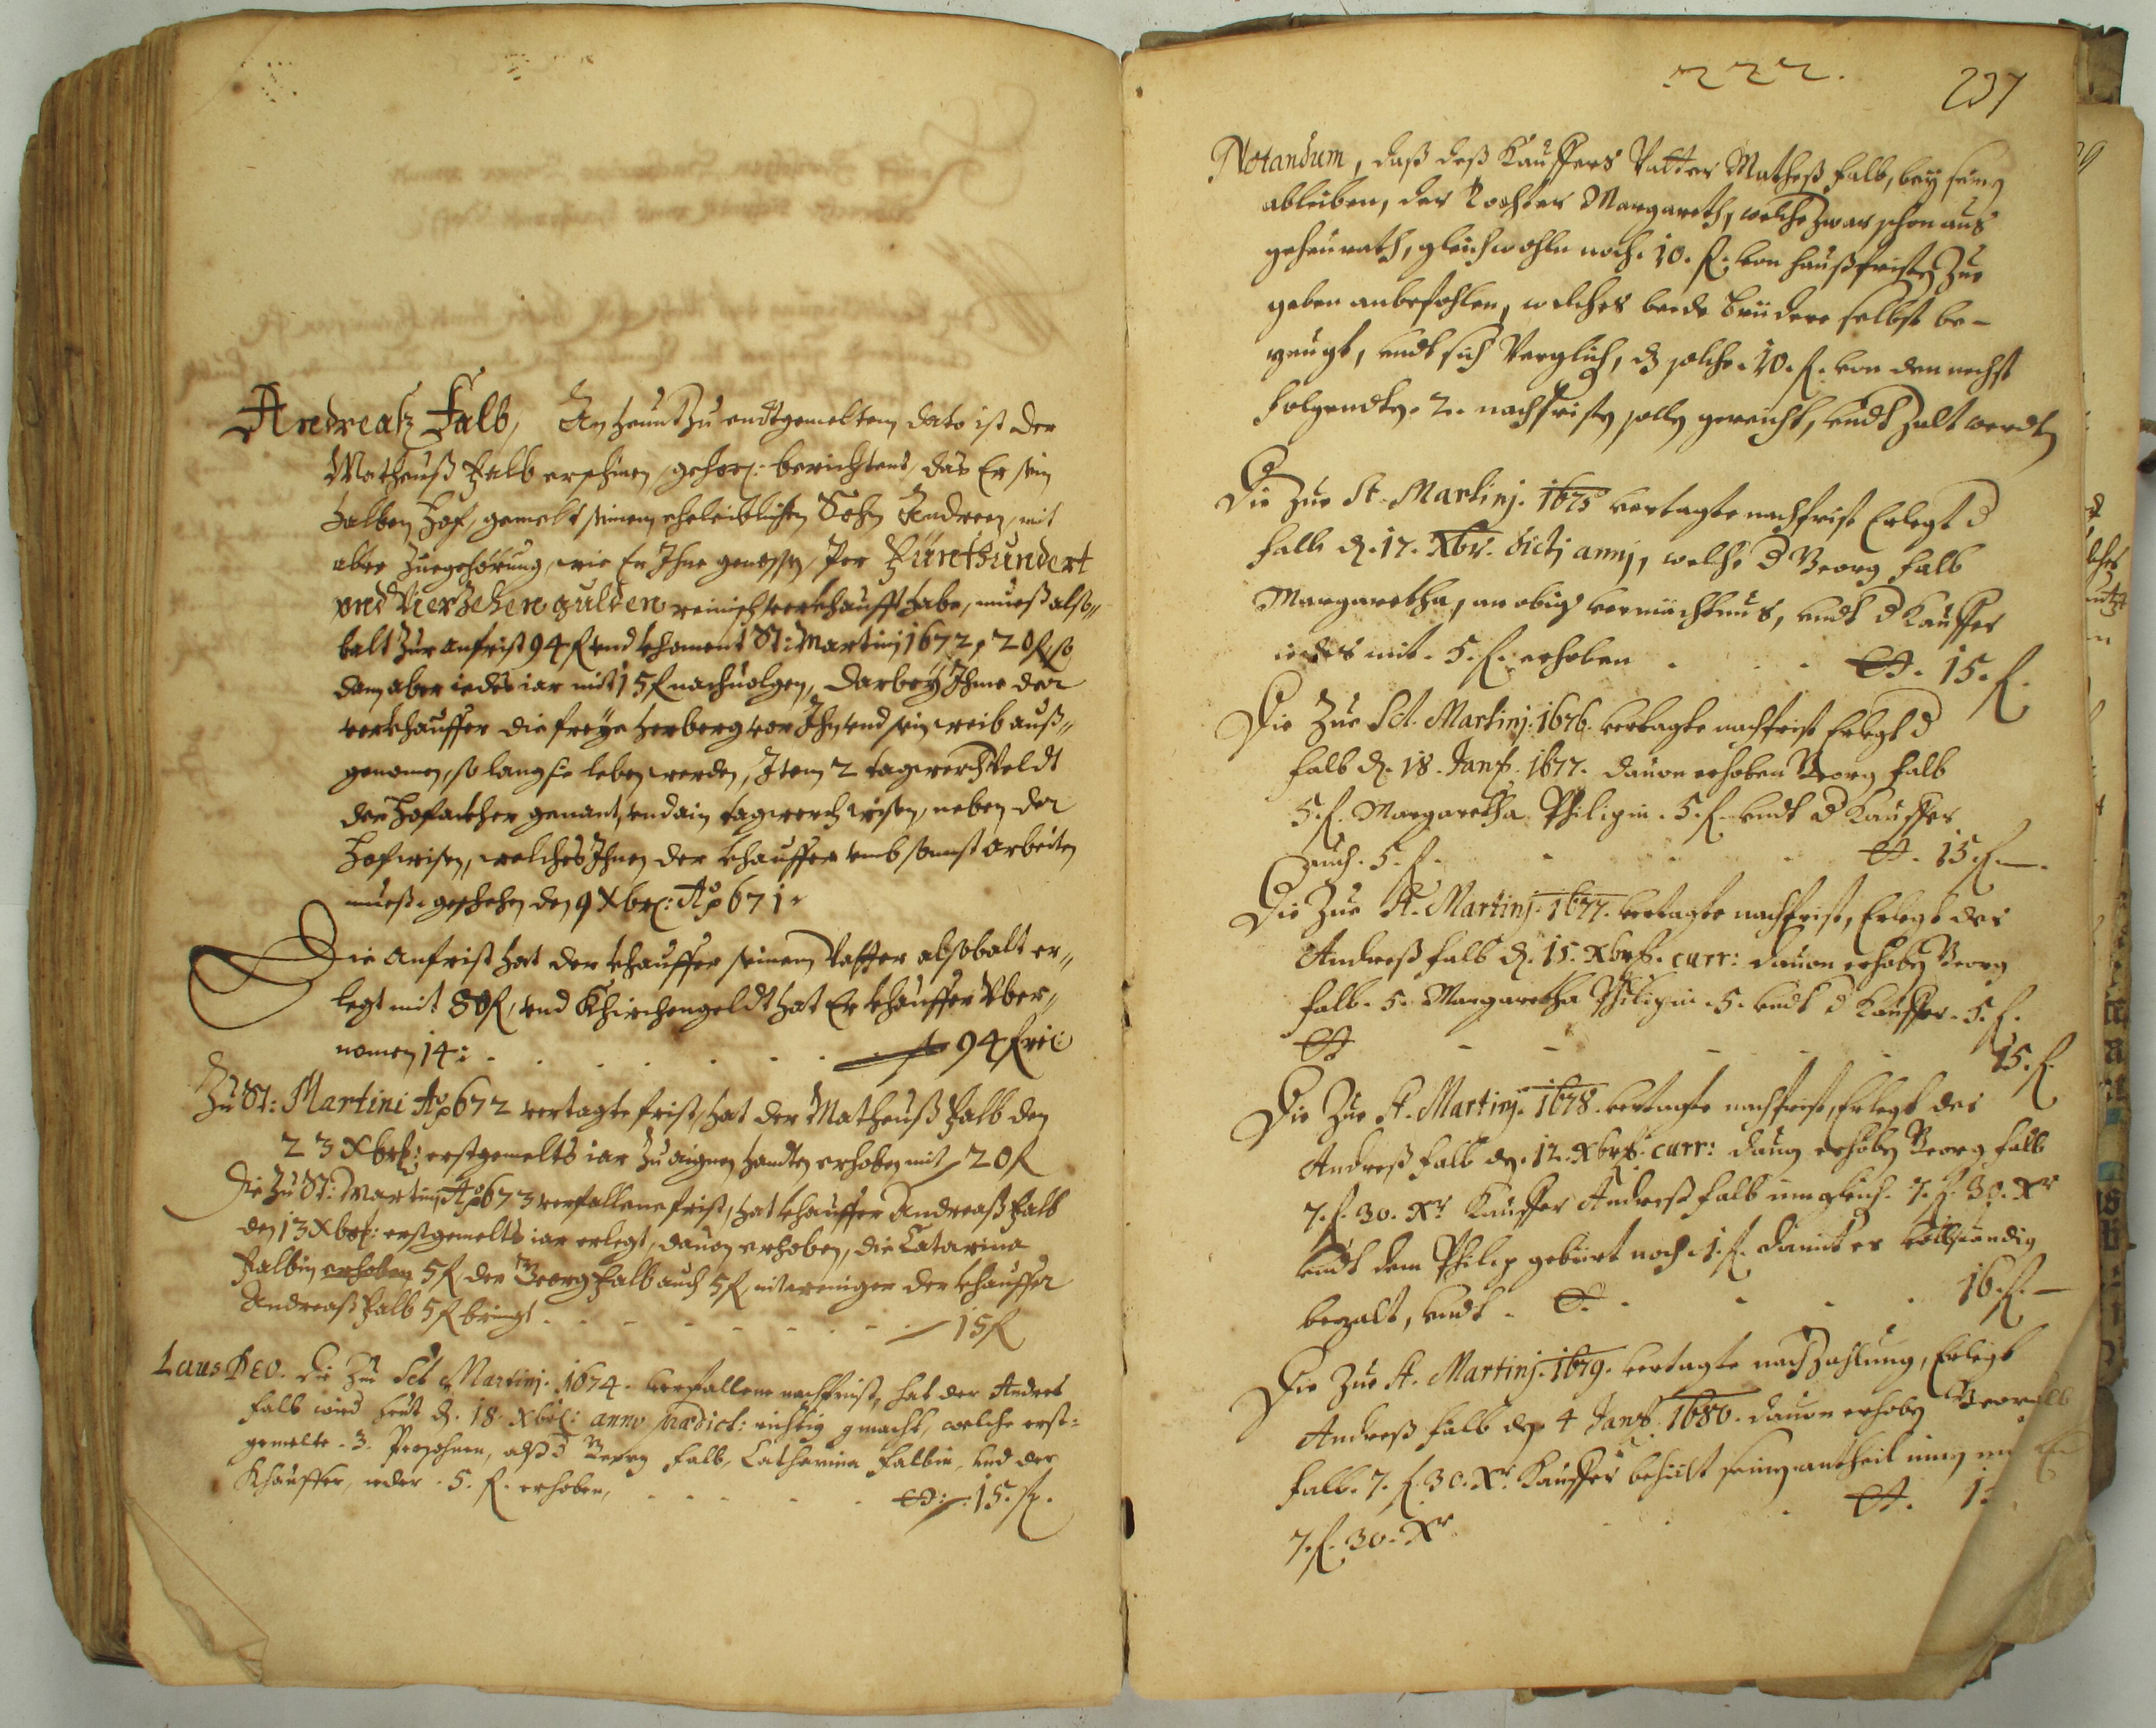 Andreaß Falb, An heunt zu endtgemeltem dato ist der
Matheuß Falb erschinen, gehorſ: berichtent, das Er sein
halben Hof, gemelt seinem eheleiblichen Sohn Andreen, mit
aller Zuegehörung, wie Er Ihne genossen, Per Fünfhundert
vnd Vierzehen gulden reinisch verkhaufft habe, mueß also„
balt zur anfrist 94 f vnd khoment St: Martini 1672, 20 f so
dan aber iedes iar mit 15 f nachuolgen, Darbey Ihme der
verkhauffer die freye herberg vor Ihn vnd sein weib auß„
genomen, so lang sie leben werden, Item 2 tagwerch Veldt
der Hofackher genant, vnd ain tagwerch wisen, neben der
Hofwisen, welches Ihnen der khauffer vmb sonnst arbeiten
mueß, geschehen den 9 Xbrſ: Ao 671.
Die Anfrist hat der khauffer seinem Vatter alsobalt er„
legt mit 80 f, vnd Khirchengeldt hat Er khauffer Vber„
nomen 14: . . . . . 94 f rei:
Zu St: Martini Ao 672 vertagte frist, hat der Matheuß Falb den
23 Xbrſ: erstgemelts iar zu aignen handten erhoben mit 20 f
Die Zu St: Martini Ao 673 verfallene frist, hat khauffer Andreaß Falb
den 13 Xbrſ: erstgemelts iar erlegt, dauon erhoben, die Catarina
Falbin erhoben 5 f der Georg Falb auch 5 f, nit weniger der khauffer
Andreaß Falb 5 f bringt . . . . . 15 f
Laus DEO. Die Zu Sct Martinj. 1674. verfallene nachfrist, hat der Andreß
Falb wird heut d. 18. Xbrſ: anno prædict: richtig gmacht, welche erst=
gemelte. 3. Persohnen, alß d Georg Falb, Catharina Falbin, vnd der
Khauffer, ieder. 5. f. erhoben, . . . . 15. f.
222.
237
Notandum, daß deß Kauffers Vatter Matheß Falb, bey seinen
ableiben, der Tochter Margareth, welche zwar schon aus
geheurath, gleichwohln noch. 10. f. von haußfristen zue
geben anbefohlen, welches beede brüdere selbst be-
zeugt, vndt sich Verglich, dz solche. 10. f. von den nechst
folgendten. 2. nachfristen sollen gereicht, vndt zalt werdten
Die Zue St. Martinj. 1675 vertagte nachfrist Erlegt d
Falb d. 17. Xbr. dictj annj, welche d Georg Falb
Margaretha, an obig vermächtnus, vndt d Kauffer
iedes mit. 5. f. erhoben . . . 15. f.
Die Zue Sct. Martinj. 1676. vertagte nachfrist Erlegt d
Falb d. 18. Janr. 1677. dauon erhoben Georg Falb
5. f. Margaretha Philipin. 5. f. vndt d Kauffer
auch. 5. f. . . . 15. f.
Die Zue St. Martinj. 1677. vertagte nachfrist, Erlegt der
Andreß Falb d. 15. Xbrs. curr: dauon erhoben Georg
Falb. 5. Margaretha Philipin. 5. vndt d Kauffer. 5. f.
15. f.
Die Zue St. Martinj. 1678. vertagte nachfrist, Erlegt der
Andreß Falb den. 12. Xbrs. curr: dauon erhoben Georg Falb
7. f. 30. Xr Kauffer Andreß Falb imgleich. 7. f. 30. Xr
vndt dem Philip gebürt noch. 1. f. damit er vollstendig
bezalt, vndt . . . . 16. f.
Die Zue St. Martinj. 1679. vertagte nachzahlung, Erlegt
Andreß Falb den. 4 Janr. 1680. dauon erhoben Georg
Falb. 7. f. 30. Xr. Kauffer behielt seinen antheil innen
7. f. 30. Xr